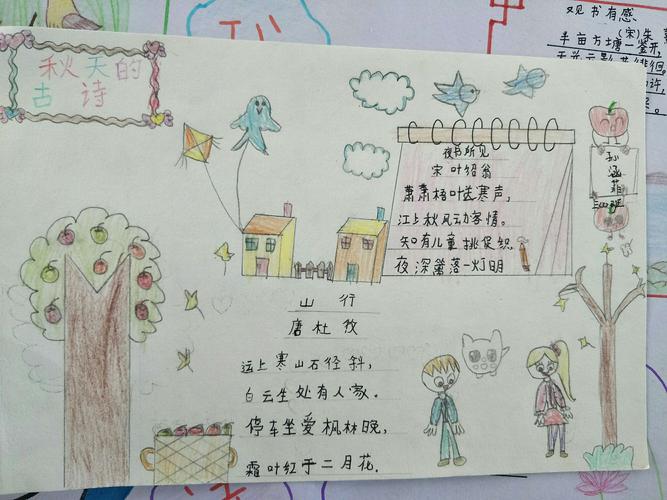 秋天的
古诗
夜书所见
宋叶绍翁
萧萧梧叶送寒声,
江上秋风动客情。
知有儿童挑促织
夜深篱落一灯明
山行
唐杜牧
远上寒山石径斜,
白云生处有人家.
停车坐爱枫林晚,
霜叶红于二月花.
孙涵菲
观书有感
(宋)朱
半亩方塘一鉴开,
徘徊
许,